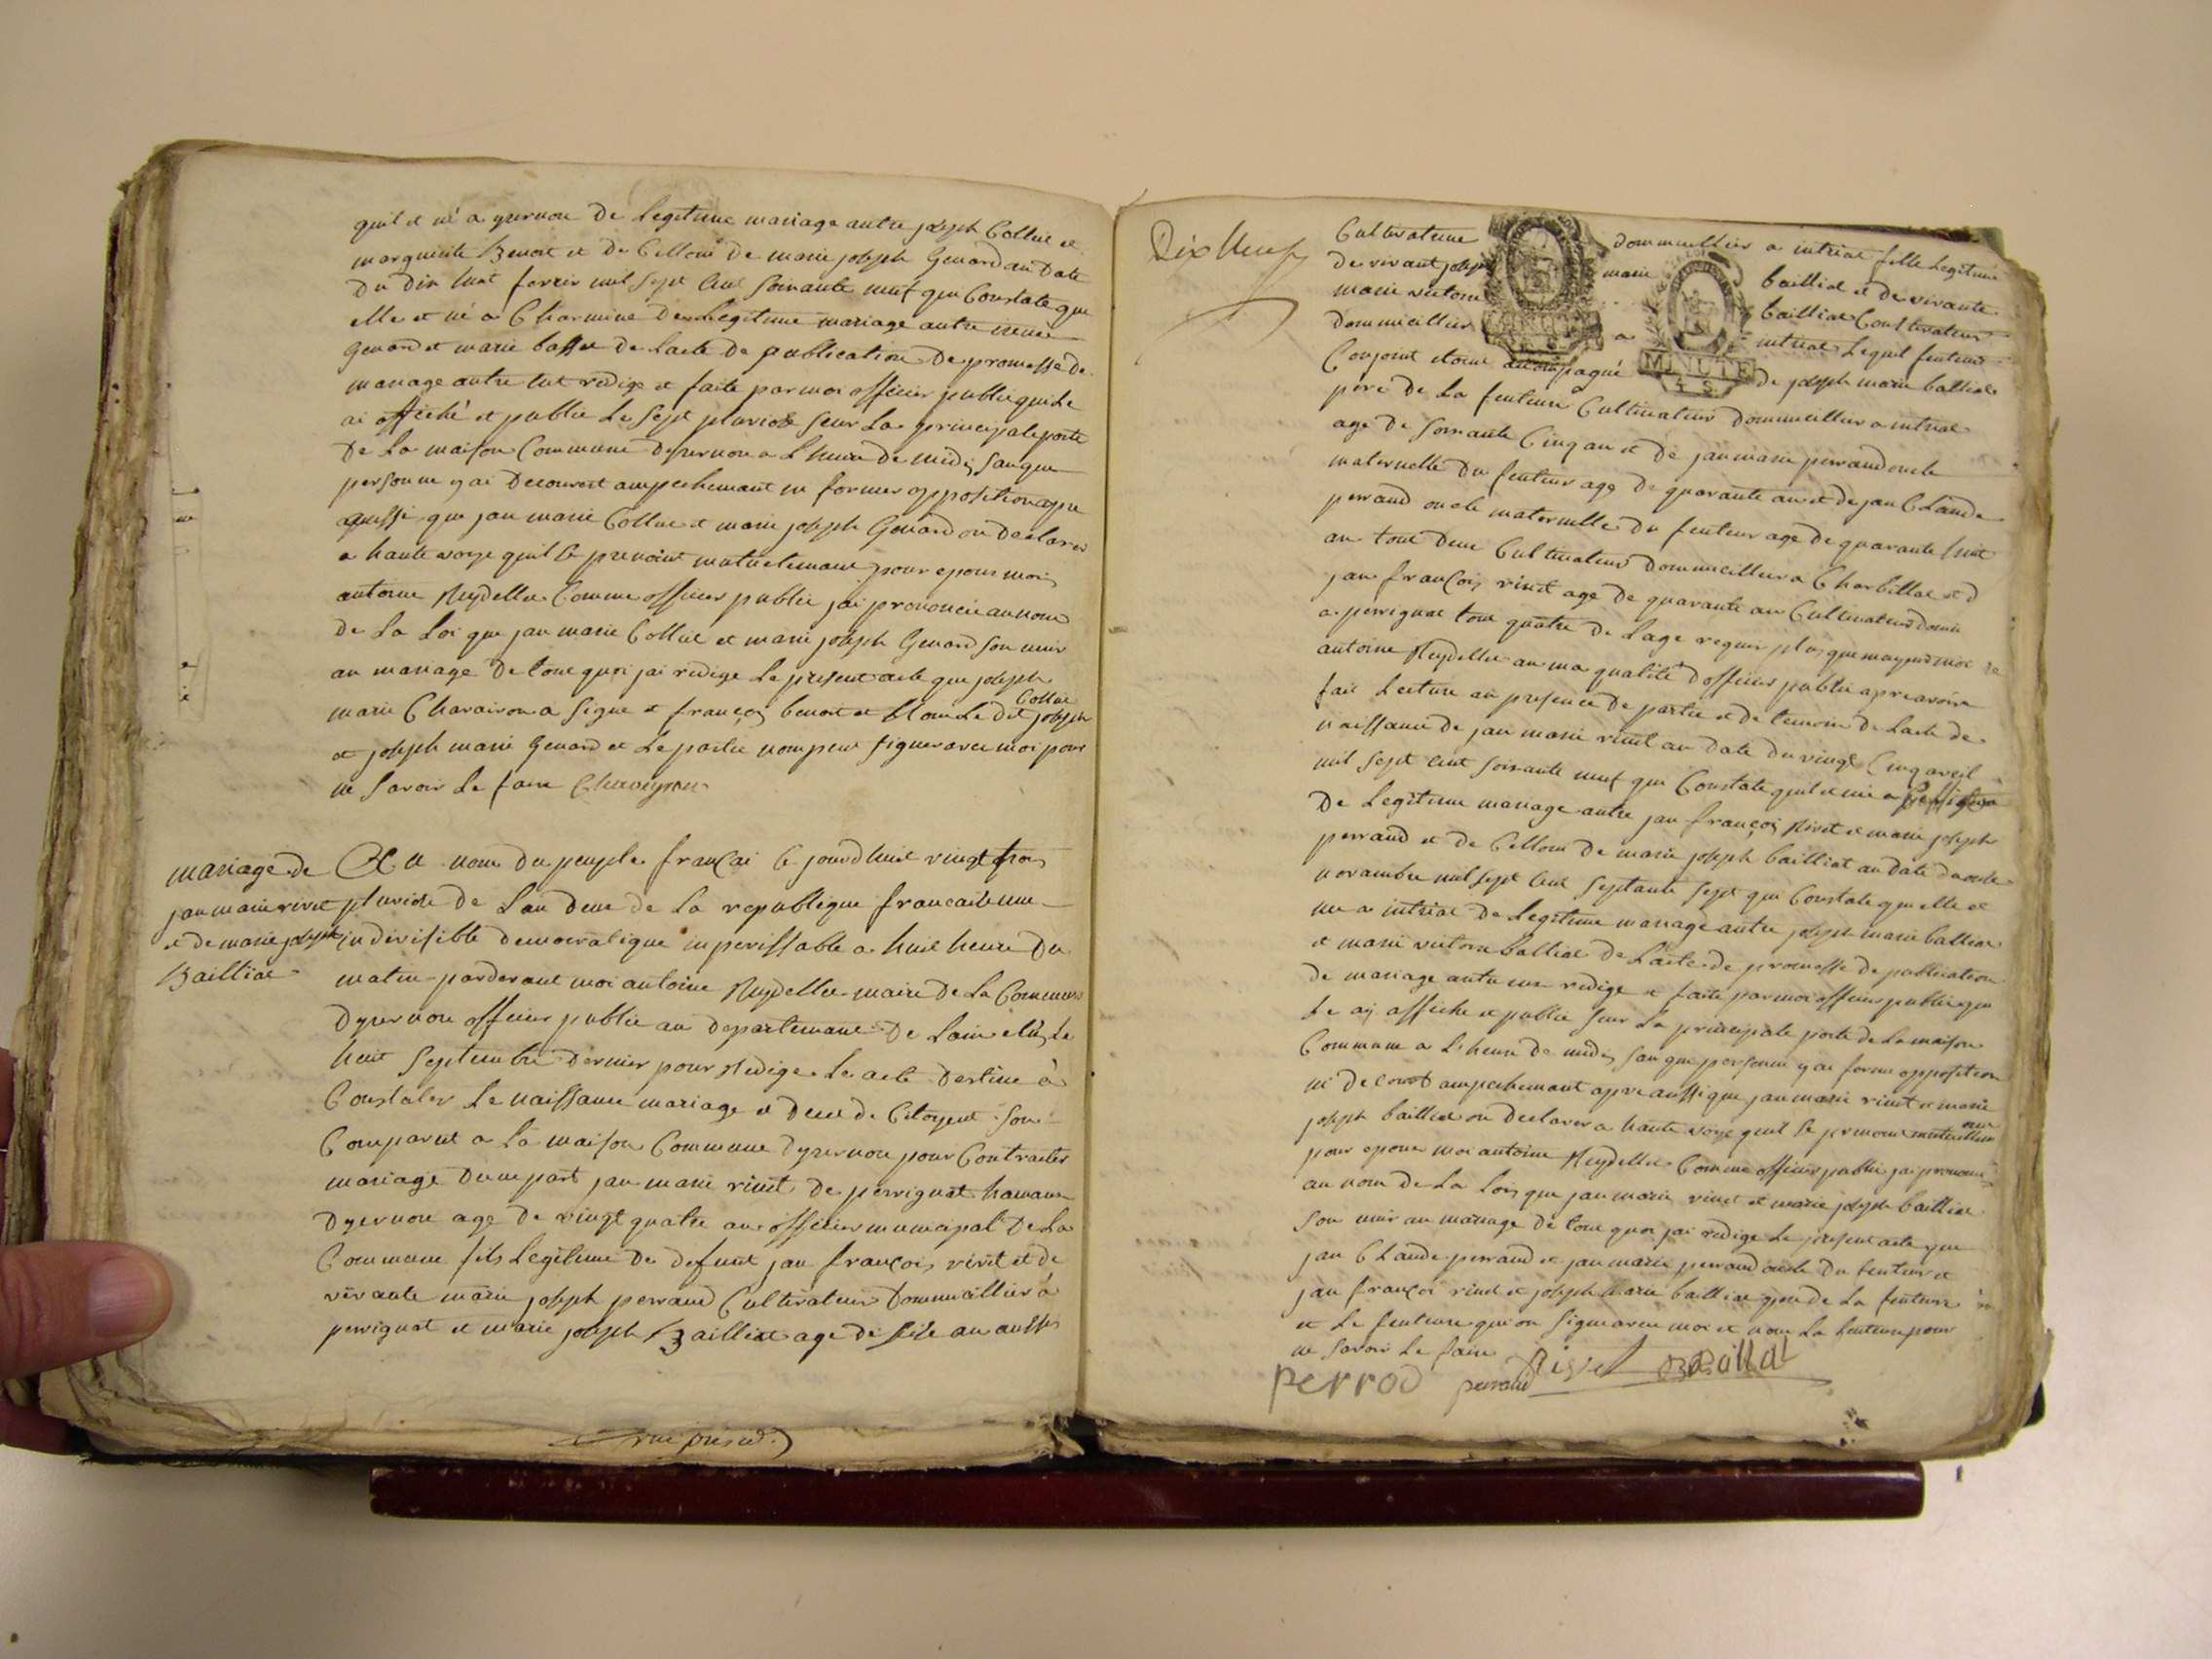 quil et né a yzernore De Legitime mariage antre joseph Collue et
marguerite Benoit et De Cellont De marie joseph Genard au Date
Du Dix huit fevrier mil Sept Cent Soixante neuf qui Constate que
elle et né a Charmine De Legitime mariage antre
Genard et marie baffet de Lacte De publication De promesse De
mariage autre redige et faite par moi officier publie qui Le
ai affiché et publie Le Sept pluviose Seur La principale porte
De La maison Commune Dysernore a Lheure De midi San que
personne y ai Decouvert ampechemant ni former opposition apre
aussi que jan marie Collue et marie joseph Genard on Declarer
a haute voye quil Se prenoint mutuelemant pour epour moi
antoine Reydellet Comme officier publie jai prononcée au nom
De La Loi que jan marie Collue et marie joseph Genard Son unir
an mariage De tout quoi jai redige Le present acte que joseph
marie Charairon a Signe et françois benoit et Le Dit joseph Collue
et joseph marie Genard et Le partie nom peut Signer avec moi pour
ne Savoir Le faire Charveyron
mariage De
jan marie rivet
et De marie joseph
Bailliat
Au nom Du peuple françai Ce jourdhuit vingt trois
pluviose De Lan Deux De La republique francaise une
indivisible Democratique inperissable a huit heure Du
matin pardevant moi antoine Reydellet maire De La Commune
Dysernore officier publie au Departemant De Lain elus Le
huit Septembre Dernier pour Redige Le acte Destine à
Constater Le naissance mariage et Deces De Citoyent Son
Comparut a La maison Commune Dysernore pour Contracter
mariage Dune part jan marie rivet De perrignat hamaux
Dysernore age De vingt quatre an officier municipal De La
Commune fils Legitime De Defunt jan françois rivet et De
vivante marie joseph perraud Cultivateur Dommicillier à
perrignat et marie joseph Bailliat age De an aussi
Dix Neuf
Cultivateure dommicillier a intriat fille Legitime
De vivant joseph marie bailliat et De vivante
marie victoire bailliat Cultivateur
Dommicillier a intriat Lequel feuteur
Conjoint accompagné De joseph marie balliat
MINUTE
4 S
père De La feuteure Cultivateur Dommicillier a intriat
age De Soixante Cinq an et De jan marie perraud oncle
maternelle Du feuteur age De quarante an et De jan Claude
perraud oncle maternelle Du feuteur age De quarante huit
an tout Deux Cultivateur Dommicillier a Charbillat et D
jan françois rivet age De quarante an Cultivateur Domic
a perrignat tout quatre De Lage requis plus que moi
antoine Reydellet an ma qualité Dofficier publie apre avoir
fait Lecture an presence De partie et De temoin De Lacte De
naissance De jan marie rivet au Date Du vingt Cinq avril
mil Sept Cent Soixante neuf qui Constate quil et né a perrignat
De Legitime mariage antre jan françois Rivet et marie joseph
perraud et De Cellont De marie joseph bailliat au Date Du onze
novambre mil Sept Cent Septante Sept qui Constate que elle et
né a intriat De Legitime mariage antre joseph marie balliat
et marie victoire balliat De Lacte De promesse De publication
De mariage antre eux redige et faite par moi officier publie que
Le ai affiche et publie Seur La principale porte De La maison
Commune a Lheure De midi San que personne y ai forme opposition
ni Decouvert ampechemant apre aussi que jan marie rivet et marie
joseph bailliat on Declarer a haute voye quil Se prenoint mutuellement
pour epour moi antoine Reydellet Comme officier publie jai prononcé
au nom De La Lois que jan marie rivet et marie joseph bailliat
Son unir an mariage De tout quoi jai redige Le present acte que
jan Claude perraud et jan marie perraud oncle Du feuteur et
jan françoi rivet et joseph marie balliat pere De La feuteure
et Le feuteure qui on Signe avec moi et nom La feuteure pour
ne Savoir Le faire
perrod perraud Rivet Baillat